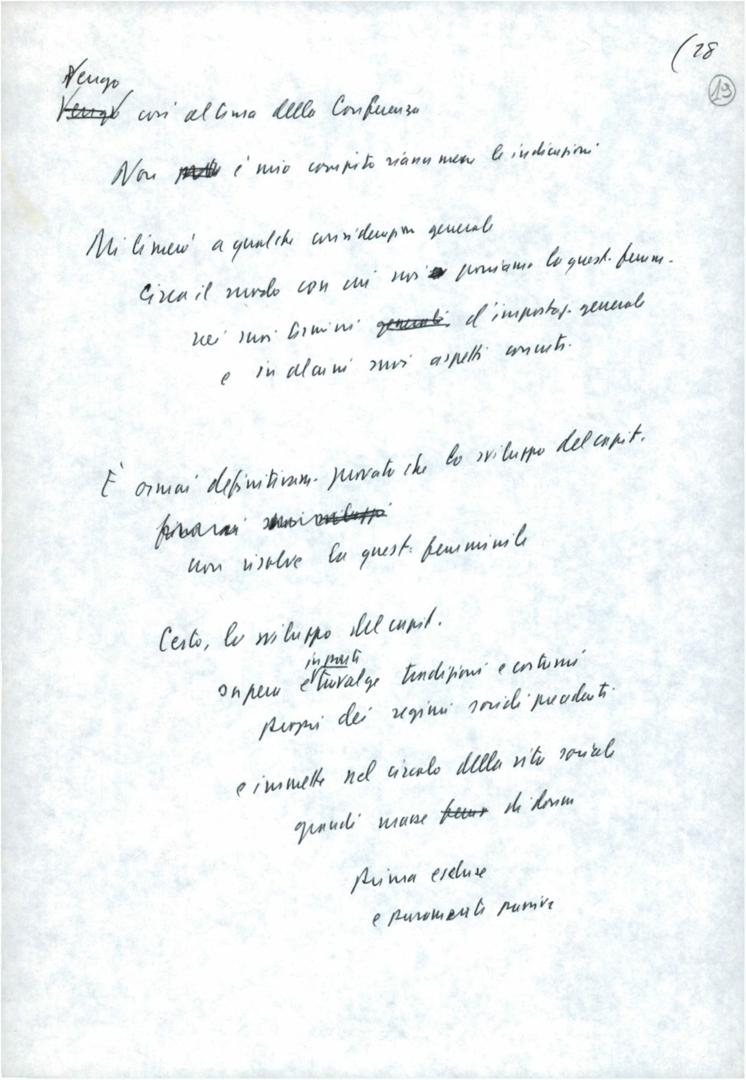 (28
19
Vengo
Vengo così al tema della Conferenza
Non è mio compito riassumere le indicazioni
Mi limerò a qualche considerazion generale
Circa il modo con cui noi poniamo la quest. femm.
nei suoi termini generali d'impostaz. generale
e in alcuni suoi aspetti concreti.
È ormai definitivam. provato che lo sviluppo del capit.
sviluppi
non risolve la quest. femminile
Certo, lo sviluppo del capit.
in parti
supera e travolge tradizioni e costumi
propri dei regimi sociali precedenti
e immette nel circolo della vita sociale
grandi masse di donne
prima escluse
e puramente passive